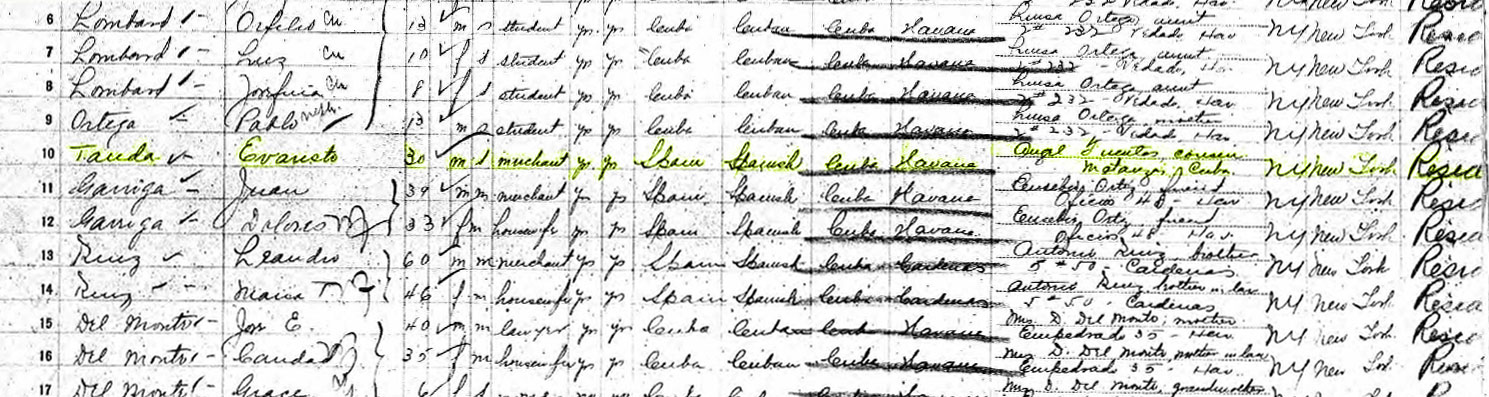 6 Lombard Orfilio 13 m s student ys ys Cuba Cuban Cuba Havana Luisa Ortega, aunt NY New York
2ª 232 Vedado, Hav
7 Lombard Luz 10 f s student ys ys Cuba Cuban Cuba Havana Luisa Ortega, aunt NY New York
2ª 232 Vedado, Hav
8 Lombard Josefina 8 f s student ys ys Cuba Cuban Cuba Havana Luisa Ortega, aunt NY New York
2ª 232 Vedado, Hav
9 Ortega Pablo neph. 13 m s student ys ys Cuba Cuban Cuba Havana Luisa Ortega, mother NY New York
2ª 232 Vedado Hav
10 Tauda Evaristo 30 m s merchant ys ys Spain Spanish Cuba Havana Angel Fuentes cousin NY New York
Matanzas, Cuba
11 Garriga Juan 39 m m merchant ys ys Spain Spanish Cuba Havana Eusebio Ortiz, friend NY New York
Oficios 48 - Hav
12 Garriga Dolores W 33 f m housewife ys ys Spain Spanish Cuba Havana Eusebio Ortiz friend NY New York
Oficios 48 Hav.
13 Ruiz Leandro 60 m m merchant ys ys Spain Spanish Cuba Cardenas Antonio Ruiz brother NY New York
5ª 50 - Cardenas
14 Ruiz Maria T. 46 f m housewife ys ys Spain Spanish Cuba Cardenas Antonio Ruiz brother in law NY New York
5ª 50 Cardenas
15 Del Monte Jose E. 40 m m lawyer ys ys Cuba Cuban Cuba Havana Mrs. D. Del Monte, mother NY New York
Empedrado 35 - Hav
16 Del Monte 35 f m housewife ys ys Cuba Cuban Cuba Havana Mrs D. Del Monte, mother in law NY New York
Empedrado 35 - Hav
17 Del Monte Grace 6 f s Cuba Cuban Mrs D. Del Monte, grandmother